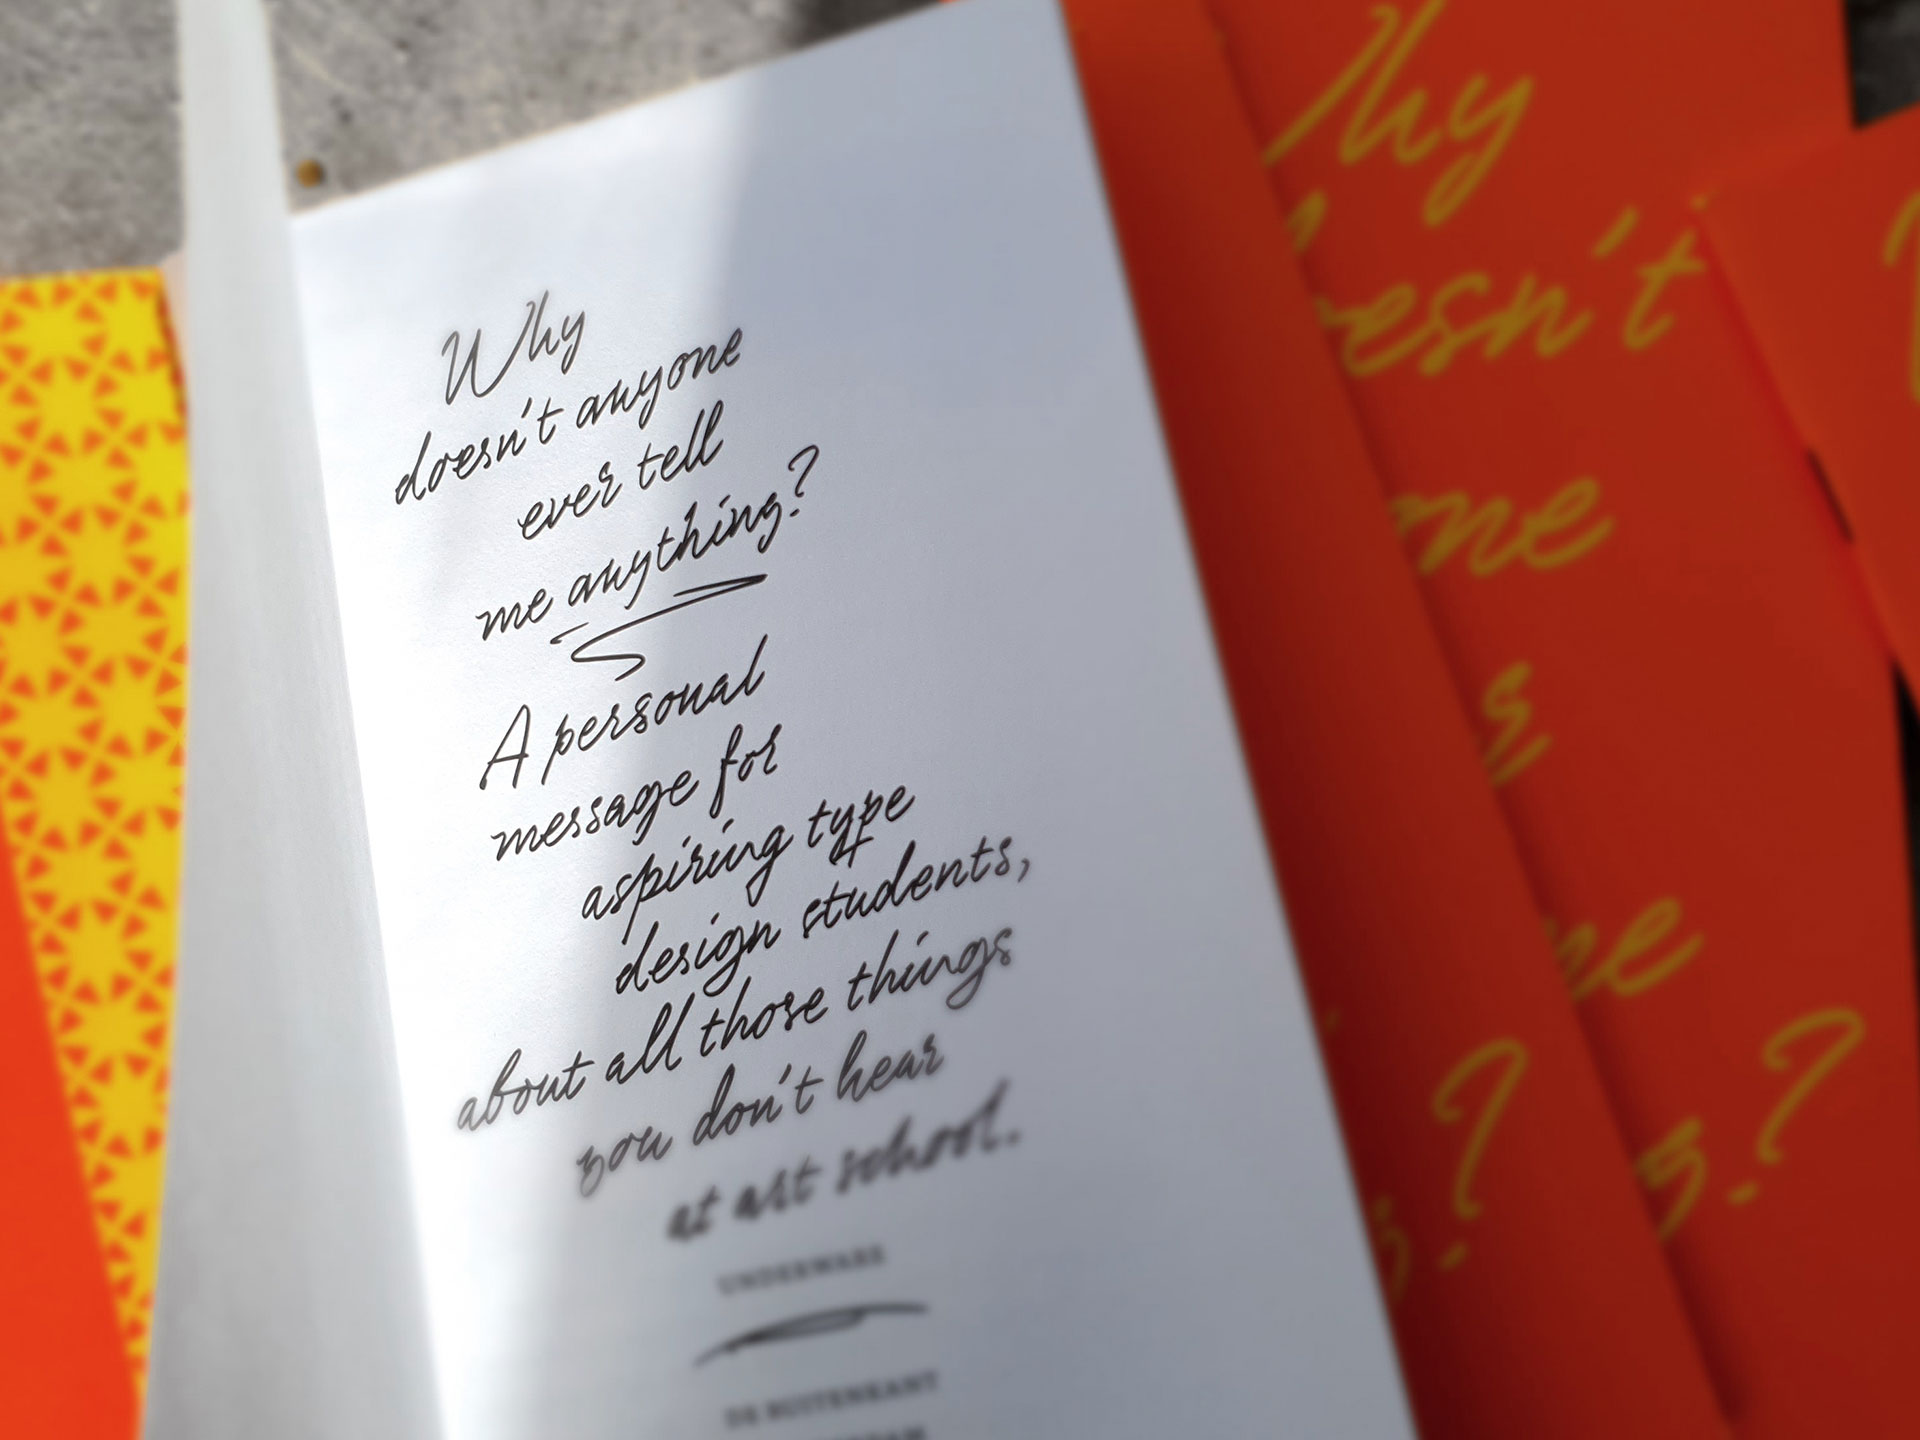 Why
doesn't anyone
ever tell
me anything?
A personal
message for
aspiring type
design students,
about all those things
you don't hear
at art school.
UNDERWARE
DE BUITENKANT
hy
oesn't
one
s
ne
s.?
s.?